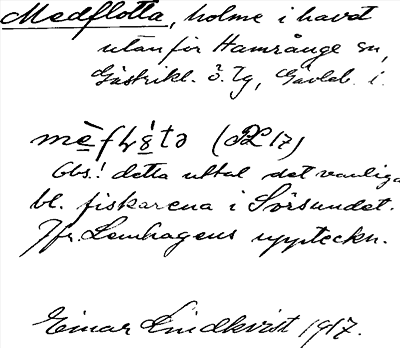 Medflotta, holme i havet
utanför Hamrånge sn,
Gästrikl. ö. Tg, Gävleb. l.
Obs.! detta uttal det vanliga
bl. fiskarena i Sörsundet.
Jfr. Lenhagens uppteckn.
Einar Lindkvist 1917.